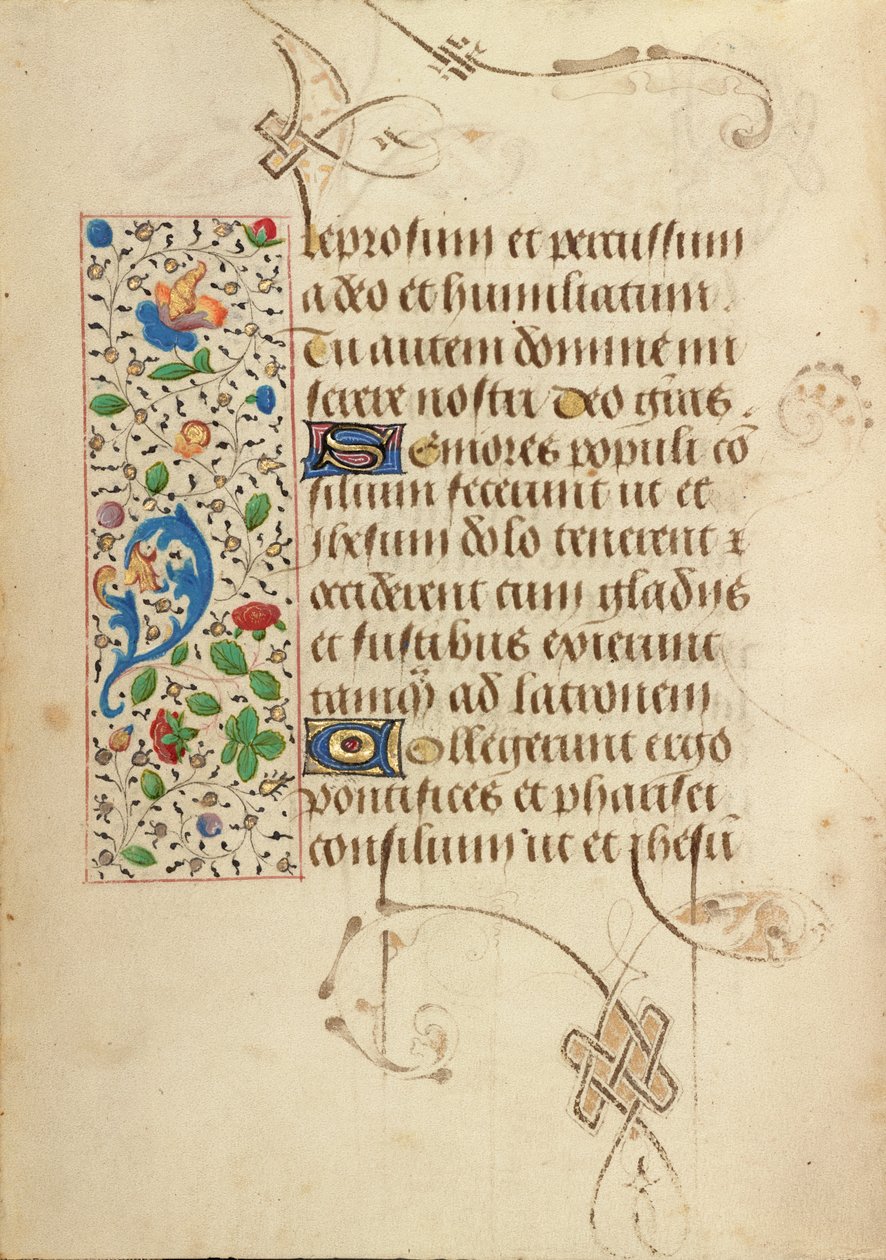 leprosum et percussum
a deo et humiliatum.
Tu autem domine mi
serere nostri Deo gr̃as.
Seniores populi cõ
silium fecerunt ut et
Jhesum dolo tenerent ⁊
occiderent cum gladijs
et fustibus exierunt
tamq̃ ad latronem
Collegerunt ergo
pontifices et pharisei
consilium ut et jhesũ